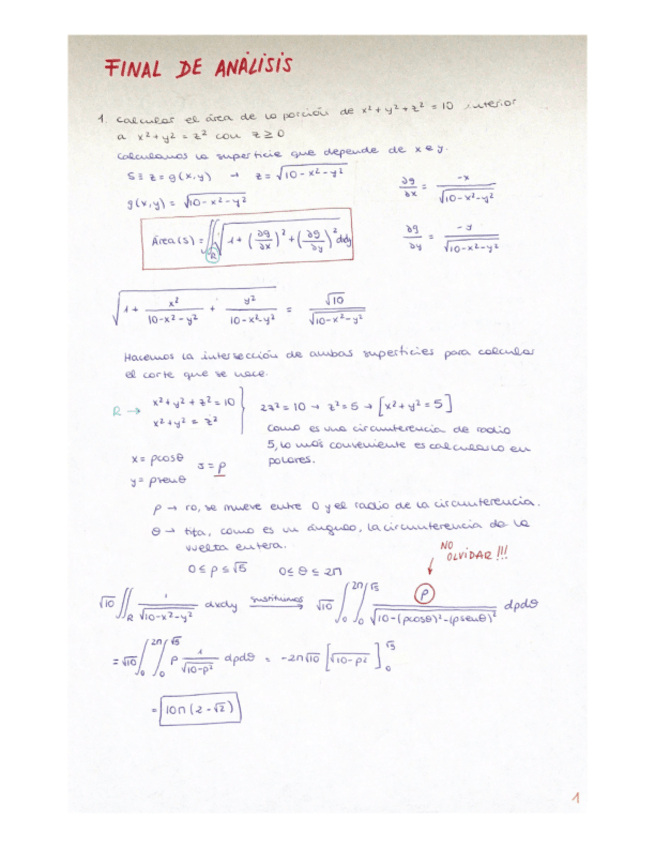 FINAL DE ANÁLISIS
1. Calcular el área de la porción de x²+y²+z² = 10 interior
a x²+y² = z² con z ≥ 0
Calculamos la superficie que depende de x e y.
S ≡ z = g(x,y) → z = √(10-x²-y²)
g(x,y) = √(10-x²-y²)
∂g/∂x = -x/√(10-x²-y²)
Área(S) = ∬_R √(1+(∂g/∂x)²+(∂g/∂y)²) dxdy
∂g/∂y = -y/√(10-x²-y²)
√(1 + x²/(10-x²-y²) + y²/(10-x²-y²)) = √10/√(10-x²-y²)
Hacemos la intersección de ambas superficies para calcular
el corte que se hace.
R → x²+y²+z² = 10
x²+y² = z²
2z² = 10 → z² = 5 → [x²+y² = 5]
Como es una circunferencia de radio
5, lo más conveniente es calcularlo en
polares.
x = ρcosθ
y = ρsenθ
J = ρ
ρ → ro, se mueve entre 0 y el radio de la circunferencia.
θ → tita, como es un ángulo, la circunferencia da la
vuelta entera.
0 ≤ ρ ≤ √5 0 ≤ θ ≤ 2π
NO
OLVIDAR!!!
√10 ∬_R 1/√(10-x²-y²) dxdy sustituimos → √10 ∫₀^2π ∫₀^√5 ρ/√(10-(ρcosθ)²-(ρsenθ)²) dρdθ
= √10 ∫₀^2π ∫₀^√5 ρ 1/√(10-ρ²) dρdθ = -2π√10 [√(10-ρ²)]₀^√5
= 10π(2-√2)
1